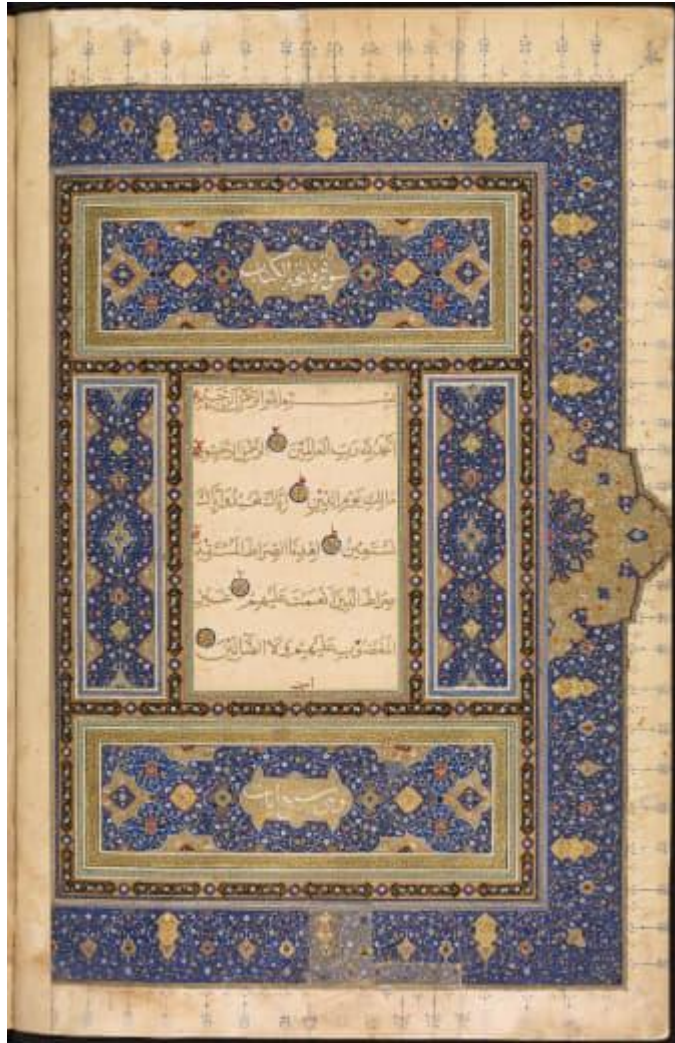 سورة فاتحة الكتاب
بسم الله الرحمن الرحيم
الحمد لله رب العالمين الرحمن الرحيم
مالك يوم الدين إياك نعبد وإياك
نستعين اهدنا الصراط المستقيم
صراط الذين أنعمت عليهم غير
المغضوب عليهم ولا الضالين
وهي سبع آيات